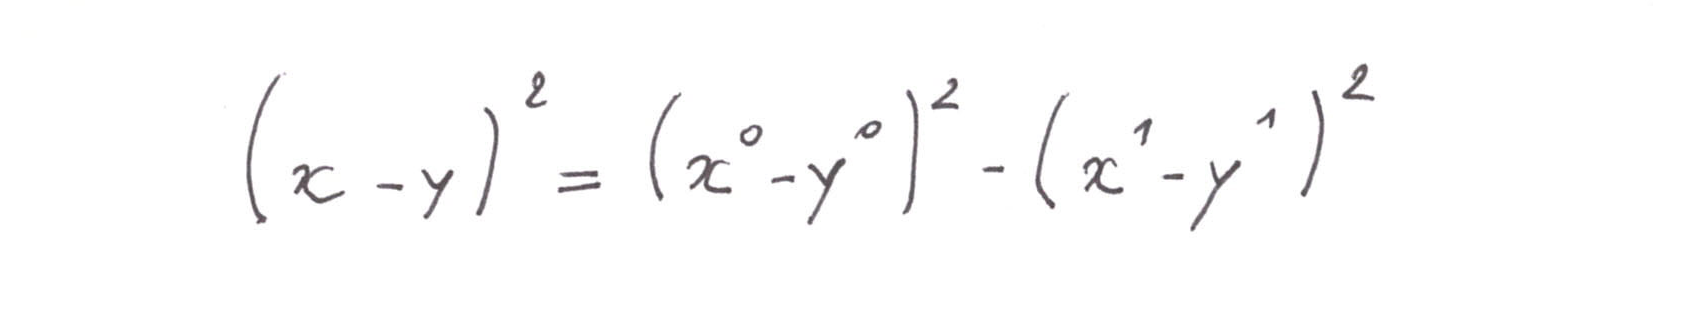 (x - y)² = (x⁰ - y⁰)² - (x¹ - y¹)²